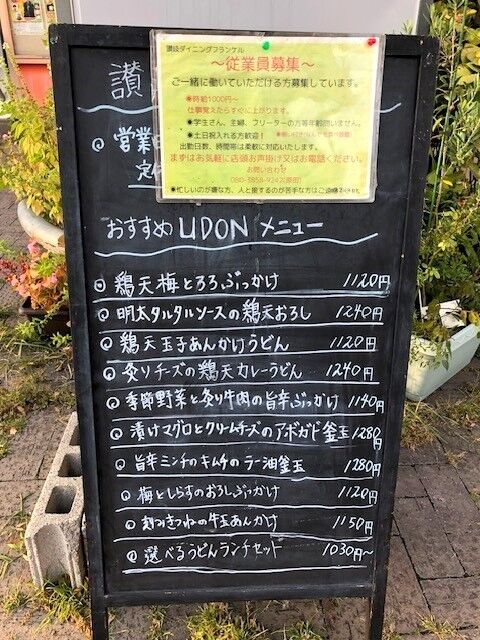 讃岐ダイニングフランケル
～従業員募集～
ご一緒に働いていただける方募集しています。
●時給1000円～
仕事覚えたらすぐに上がります。
●学生さん、主婦、フリーターの方等年齢問いません。
●土日祝入れる方歓迎！
出勤日数、時間帯は柔軟に対応いたします。
まずはお気軽に店頭お声掛け又はお電話ください。
お問い合わせ
●忙しいのが嫌な方、人と接するのが苦手な方は
讃
◎営業
定
おすすめUDONメニュー
◎鶏天梅とろろぶっかけ 1120円
◎明太タルタルソースの鶏天おろし 1240円
◎鶏天玉子あんかけうどん 1120円
◎炙りチーズの鶏天カレーうどん 1240円
◎季節野菜と炙り牛肉の旨辛ぶっかけ 1140円
◎漬けマグロとクリームチーズのアボガド釜玉 1280円
◎旨辛ミンチのキムチのラー油釜玉 1280円
◎梅としらすのおろしぶっかけ 1120円
◎きつねの牛玉あんかけ 1150円
◎選べるうどんランチセット 1030円～